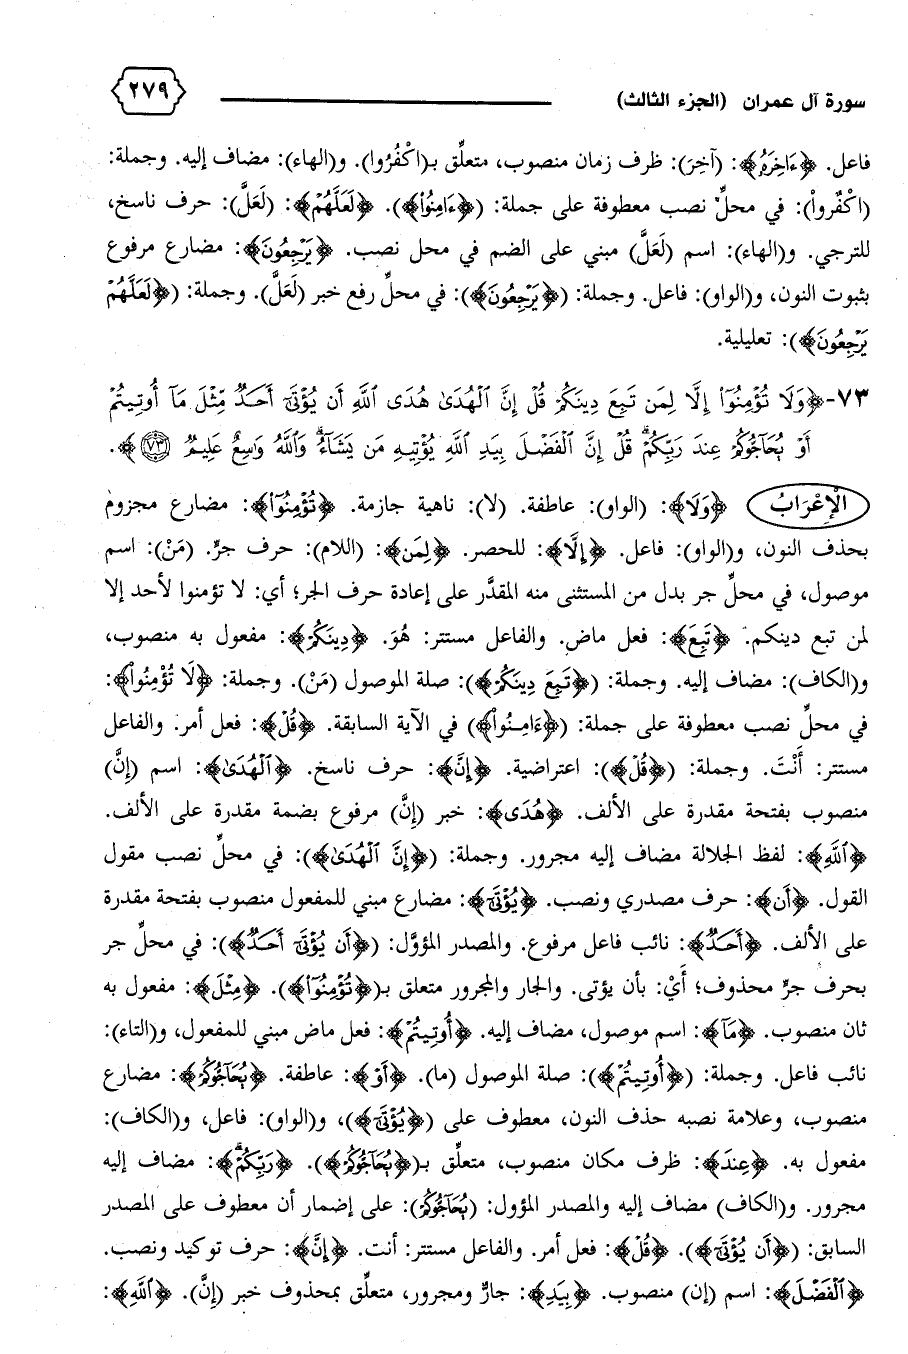 سورة آل عمران (الجزء الثالث) ٢٧٩
فاعل. ﴿ءَاخِرَهُ﴾: (آخِرَ): ظرف زمان منصوب، متعلِّق بـ(اكْفُرُوا). و(الهاء): مضاف إليه. وجملة:
(اكْفُرواْ): في محلِّ نصب معطوفة على جملة: (﴿ءَامِنُواْ﴾). ﴿لَعَلَّهُمْ﴾: (لَعَلَّ): حرف ناسخ،
للترجي. و(الهاء): اسم (لَعَلَّ) مبني على الضم في محل نصب. ﴿يَرْجِعُونَ﴾: مضارع مرفوع
بثبوت النون، و(الواو): فاعل. وجملة: (﴿يَرْجِعُونَ﴾): في محلِّ رفع خبر (لَعَلَّ). وجملة: (﴿لَعَلَّهُمْ
يَرْجِعُونَ﴾): تعليلية.
٧٣-﴿وَلَا تُؤْمِنُوٓاْ إِلَّا لِمَن تَبِعَ دِينَكُمْ قُلْ إِنَّ ٱلْهُدَىٰ هُدَى ٱللَّهِ أَن يُؤْتَىٰٓ أَحَدٌ مِّثْلَ مَآ أُوتِيتُمْ
أَوْ يُحَآجُّوكُمْ عِندَ رَبِّكُمْۗ قُلْ إِنَّ ٱلْفَضْلَ بِيَدِ ٱللَّهِ يُؤْتِيهِ مَن يَشَآءُۗ وَٱللَّهُ وَاسِعٌ عَلِيمٌ ٧٣﴾.
الْإِعْرَابُ ﴿وَلَا﴾: (الواو): عاطفة. (لا): ناهية جازمة. ﴿تُؤْمِنُوٓاْ﴾: مضارع مجزوم
بحذف النون، و(الواو): فاعل. ﴿إِلَّا﴾: للحصر. ﴿لِمَن﴾: (اللام): حرف جرٍّ. (مَنْ): اسم
موصول، في محلِّ جر بدل من المستثنى منه المقدَّر على إعادة حرف الجر؛ أي: لا تؤمنوا لأحد إلا
لمن تبع دينكم. ﴿تَبِعَ﴾: فعل ماضٍ. والفاعل مستتر: هُوَ. ﴿دِينَكُمْ﴾: مفعول به منصوب،
و(الكاف): مضاف إليه. وجملة: (﴿تَبِعَ دِينَكُمْ﴾): صلة الموصول (مَنْ). وجملة: ﴿لَا تُؤْمِنُواْ﴾:
في محلِّ نصب معطوفة على جملة: (﴿ءَامِنُواْ﴾) في الآية السابقة. ﴿قُلْ﴾: فعل أمر. والفاعل
مستتر: أَنْتَ. وجملة: (﴿قُلْ﴾): اعتراضية. ﴿إِنَّ﴾: حرف ناسخ. ﴿ٱلْهُدَىٰ﴾: اسم (إِنَّ)
منصوب بفتحة مقدرة على الألف. ﴿هُدَى﴾: خبر (إِنَّ) مرفوع بضمة مقدرة على الألف.
﴿ٱللَّهِ﴾: لفظ الجلالة مضاف إليه مجرور. وجملة: (﴿إِنَّ ٱلْهُدَىٰ﴾): في محلِّ نصب مقول
القول. ﴿أَن﴾: حرف مصدري ونصب. ﴿يُؤْتَىٰٓ﴾: مضارع مبني للمفعول منصوب بفتحة مقدرة
على الألف. ﴿أَحَدٌ﴾: نائب فاعل مرفوع. والمصدر المؤوَّل: (﴿أَن يُؤْتَىٰٓ أَحَدٌ﴾): في محلِّ جر
بحرف جرٍّ محذوف؛ أَيْ: بأن يؤتى. والجار والمجرور متعلق بـ(﴿تُؤْمِنُوٓاْ﴾). ﴿مِّثْلَ﴾: مفعول به
ثان منصوب. ﴿مَآ﴾: اسم موصول، مضاف إليه. ﴿أُوتِيتُمْ﴾: فعل ماض مبني للمفعول، و(التاء):
نائب فاعل. وجملة: (﴿أُوتِيتُمْ﴾): صلة الموصول (ما). ﴿أَوْ﴾: عاطفة. ﴿يُحَآجُّوكُمْ﴾: مضارع
منصوب، وعلامة نصبه حذف النون، معطوف على (﴿يُؤْتَىٰٓ﴾)، و(الواو): فاعل، و(الكاف):
مفعول به. ﴿عِندَ﴾: ظرف مكان منصوب، متعلِّق بـ(﴿يُحَآجُّوكُمْ﴾). ﴿رَبِّكُمْۗ﴾: مضاف إليه
مجرور. و(الكاف) مضاف إليه والمصدر المؤول: (يُحَآجُّوكُمْ): على إضمار أن معطوف على المصدر
السابق: (﴿أَن يُؤْتَىٰٓ﴾). ﴿قُلْ﴾: فعل أمر. والفاعل مستتر: أنت. ﴿إِنَّ﴾: حرف توكيد ونصب.
﴿ٱلْفَضْلَ﴾: اسم (إن) منصوب. ﴿بِيَدِ﴾: جارٌّ ومجرور، متعلِّق بمحذوف خبر (إِنَّ). ﴿ٱللَّهِ﴾: